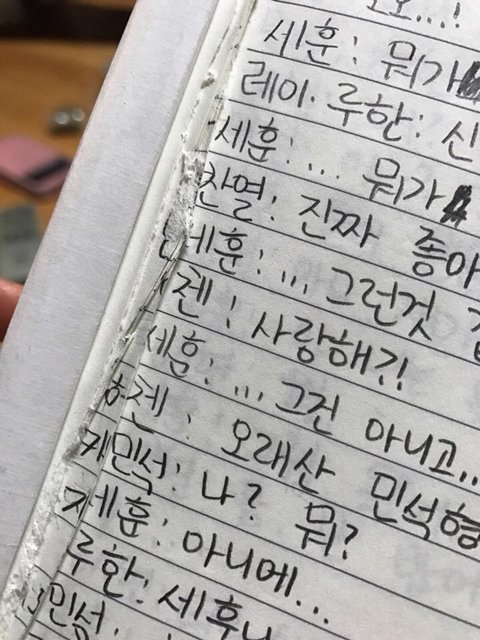 세훈: 뭐가
레이. 루한: 신
세훈: ... 뭐가
찬열: 진짜 좋아
세훈: ... 그런것
첸: 사랑해?!
세훔: ... 그건 아니고..
첸: 오래산 민석형
민석: 나? 뭐?
세훈: 아니에...
루한: 세후니
민석: